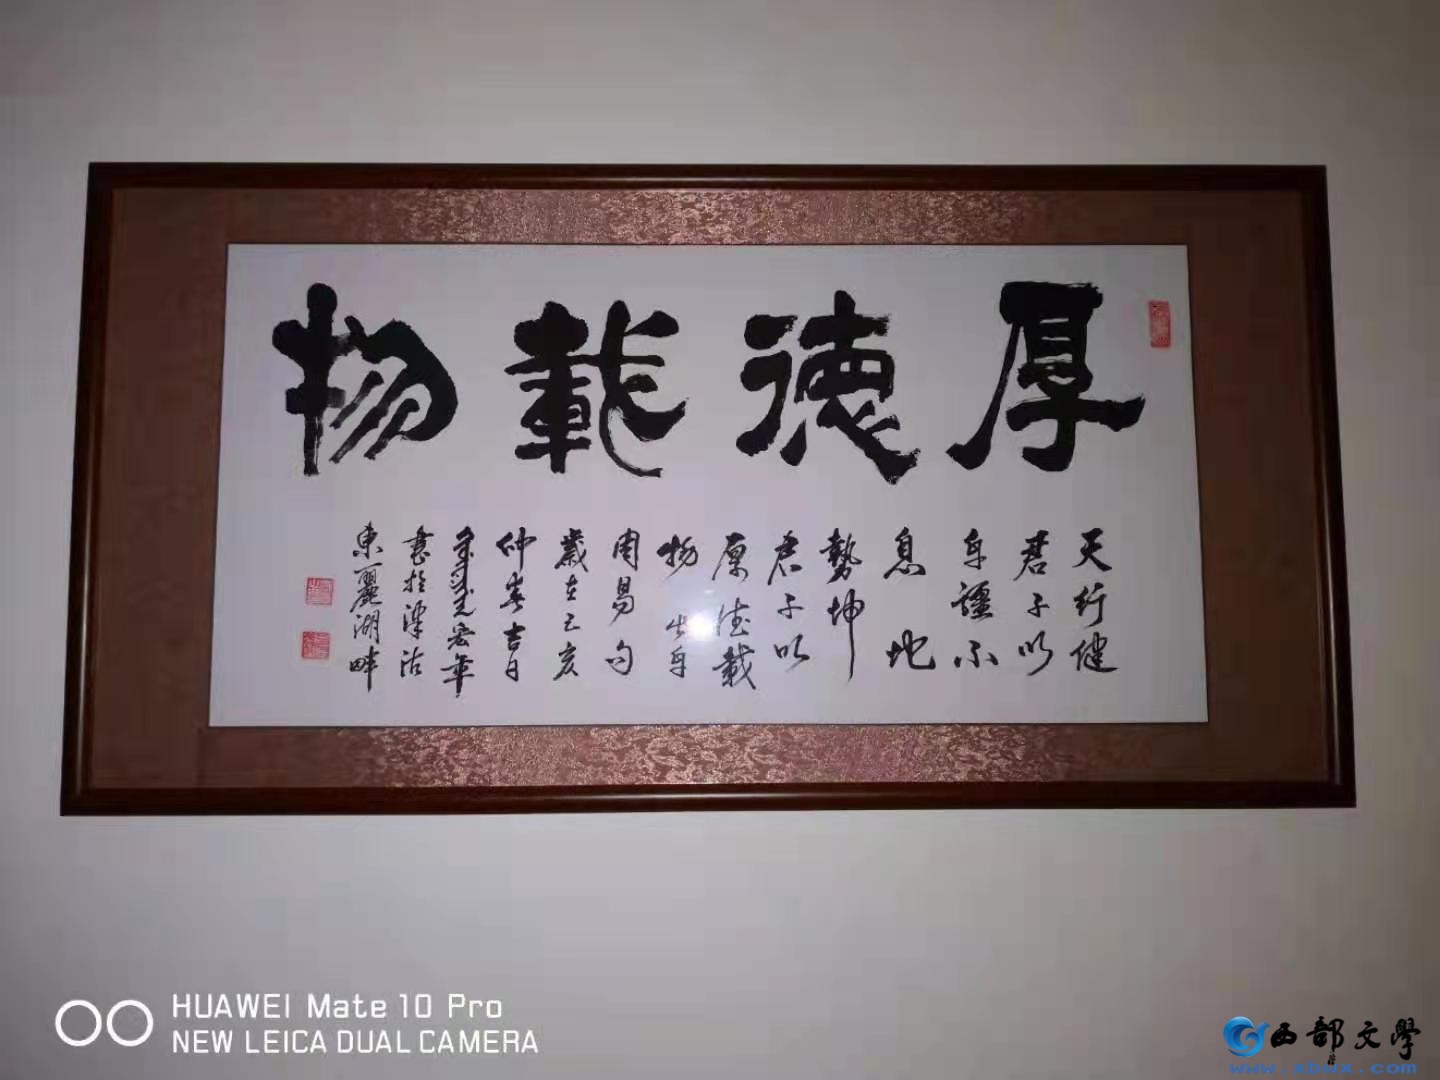 厚德載物
天行健
君子以
自彊不
息地
勢坤
君子以
厚德載
物出自
周易句
歲在己亥
仲春吉日
宏年
書於津沽
東麗湖畔
HUAWEI Mate 10 Pro
NEW LEICA DUAL CAMERA
西部文學
www.xbwx.com